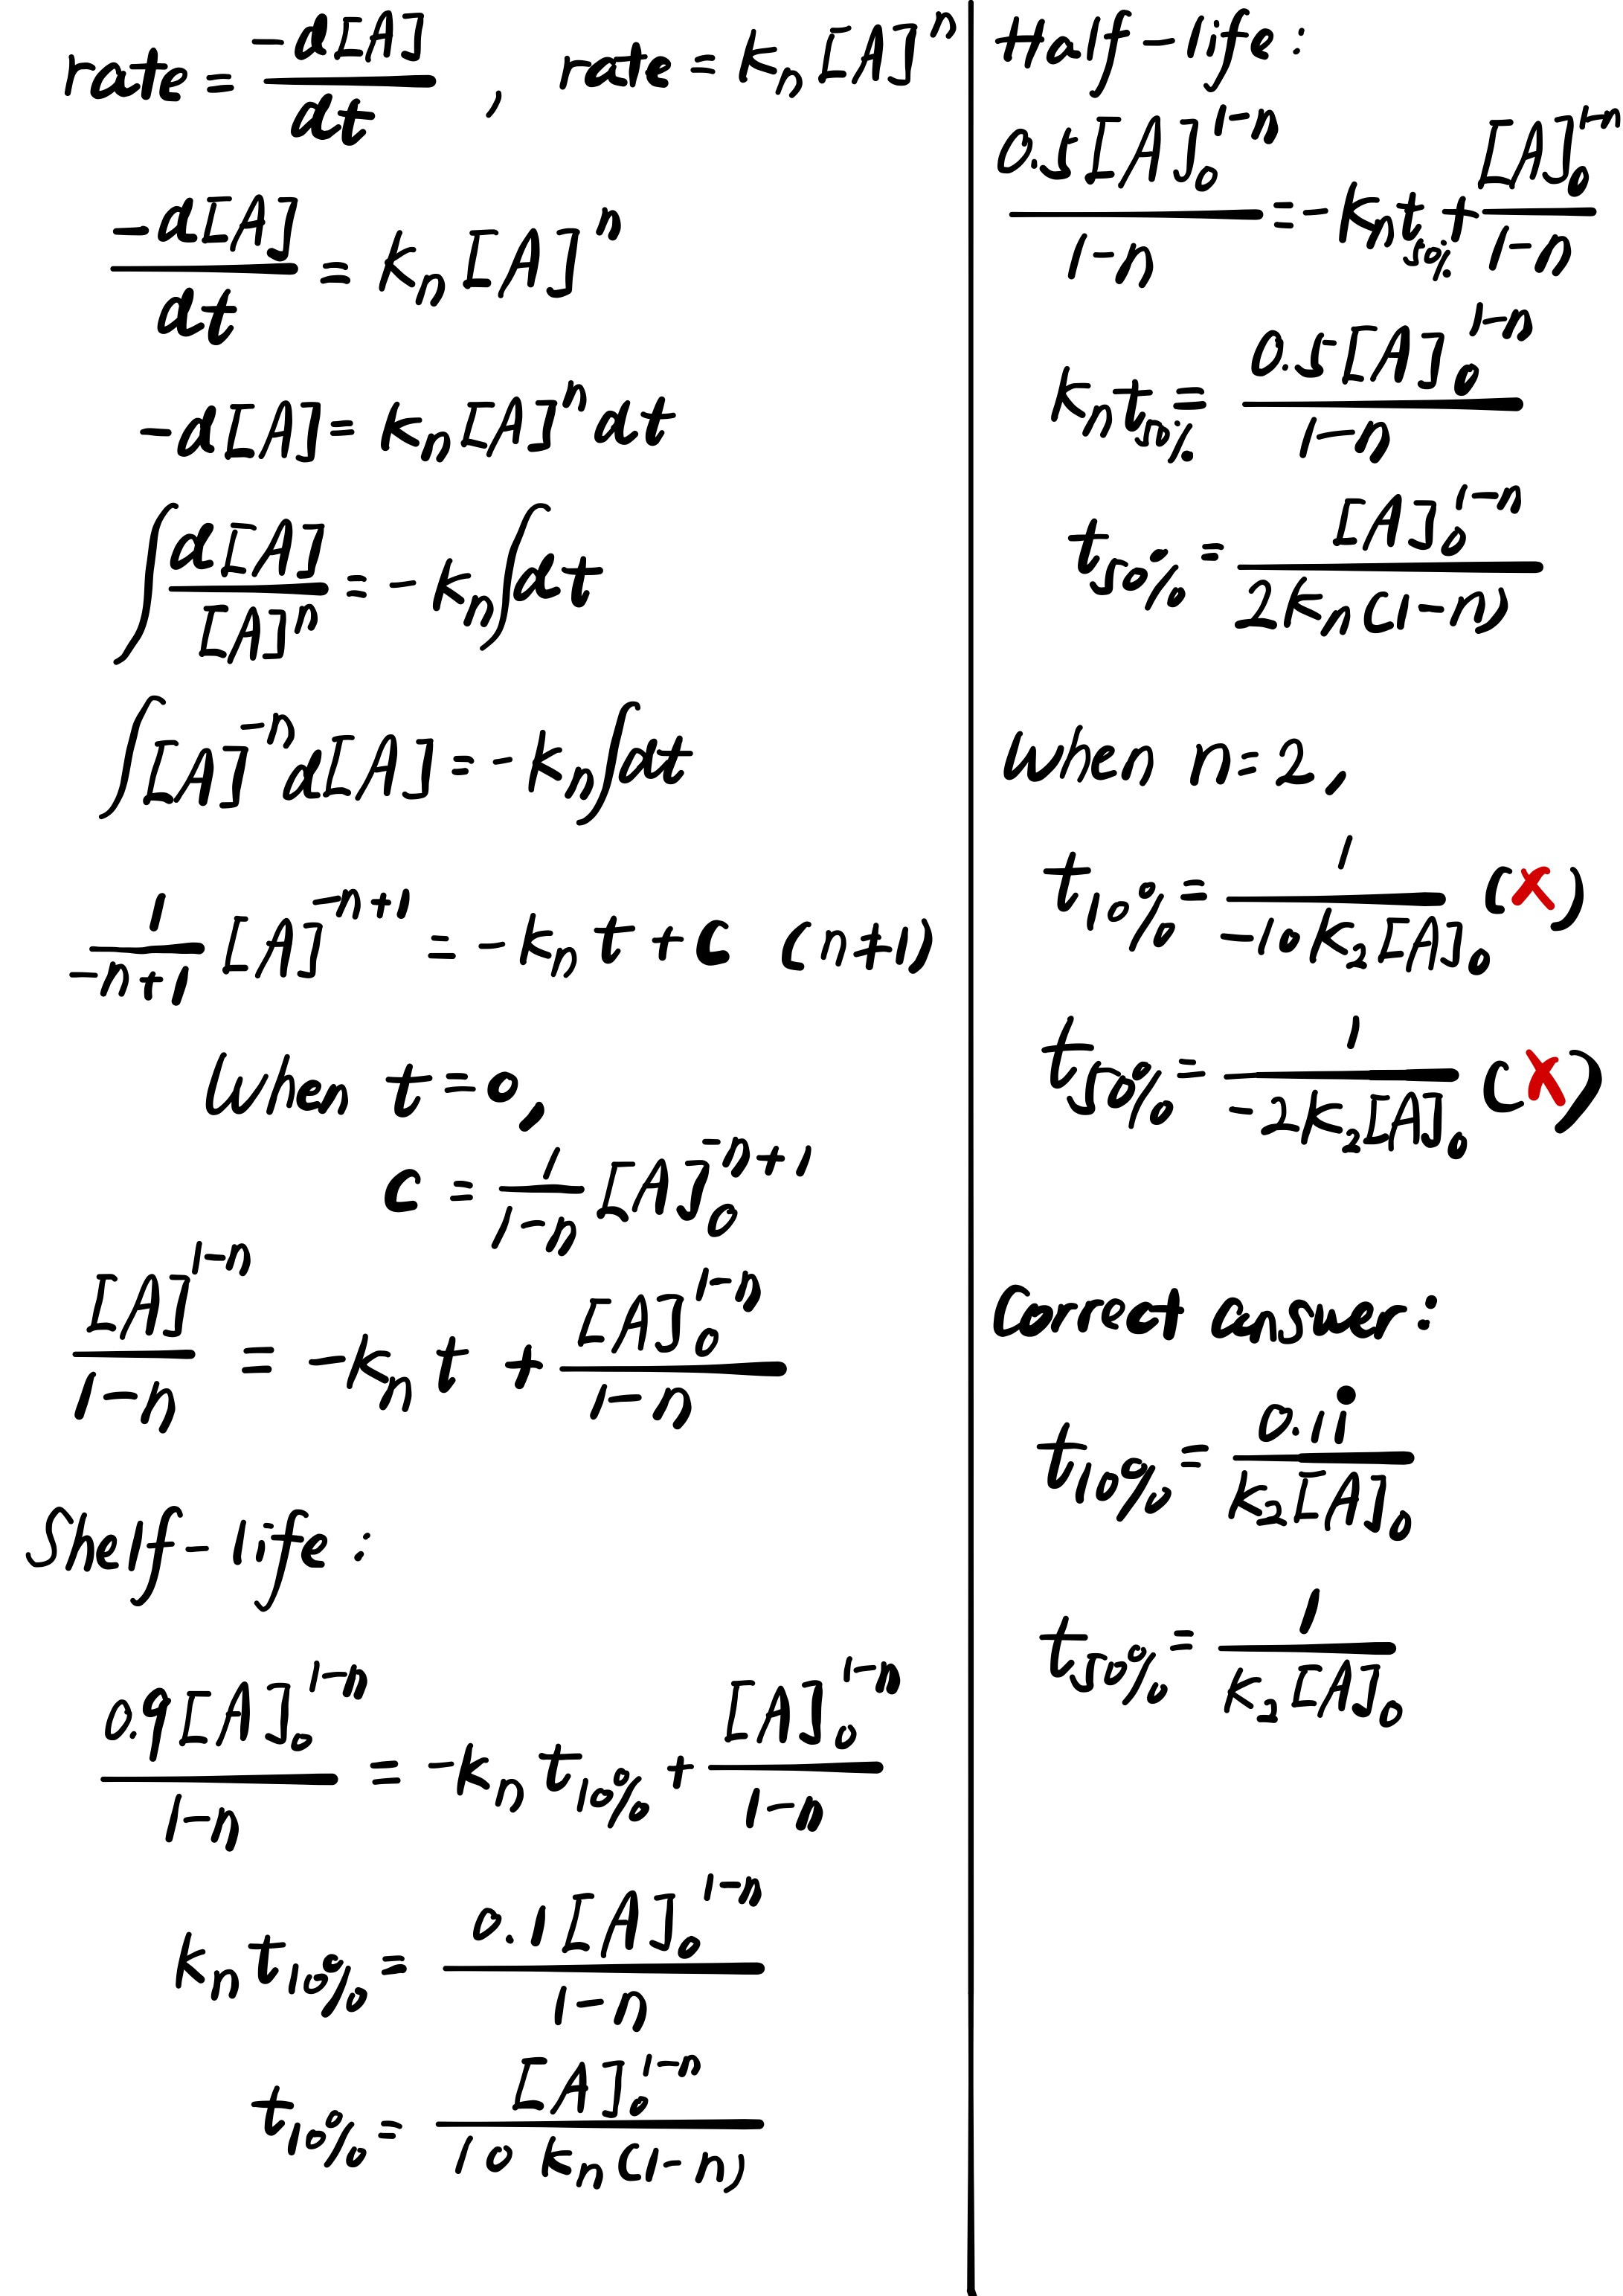 rate = -d[A]/dt , rate = kₙ[A]ⁿ
-d[A]/dt = kₙ[A]ⁿ
-d[A] = kₙ[A]ⁿdt
∫ d[A]/[A]ⁿ = -kₙ∫dt
∫[A]⁻ⁿd[A] = -kₙ∫dt
1/(-n+1) [A]⁻ⁿ⁺¹ = -kₙt + C (n≠1)
When t=0,
C = 1/(1-n) [A]₀⁻ⁿ⁺¹
[A]¹⁻ⁿ/(1-n) = -kₙt + [A]₀¹⁻ⁿ/(1-n)
Shelf-life :
0.9[A]₀¹⁻ⁿ/(1-n) = -kₙt₁₀% + [A]₀¹⁻ⁿ/(1-n)
kₙt₁₀% = 0.1[A]₀¹⁻ⁿ/(1-n)
t₁₀% = [A]₀¹⁻ⁿ/(10kₙ(1-n))
Half-life :
0.5[A]₀¹⁻ⁿ/(1-n) = -kₙt₅₀% + [A]₀¹⁻ⁿ/(1-n)
kₙt₅₀% = 0.5[A]₀¹⁻ⁿ/(1-n)
t₅₀% = [A]₀¹⁻ⁿ/(2kₙ(1-n))
When n=2,
t₁₀% = 1/(-10k₂[A]₀) (x)
t₅₀% = 1/(-2k₂[A]₀) (x)
Correct answer :
t₁₀% = 0.11̇/(k₂[A]₀)
t₅₀% = 1/(k₂[A]₀)